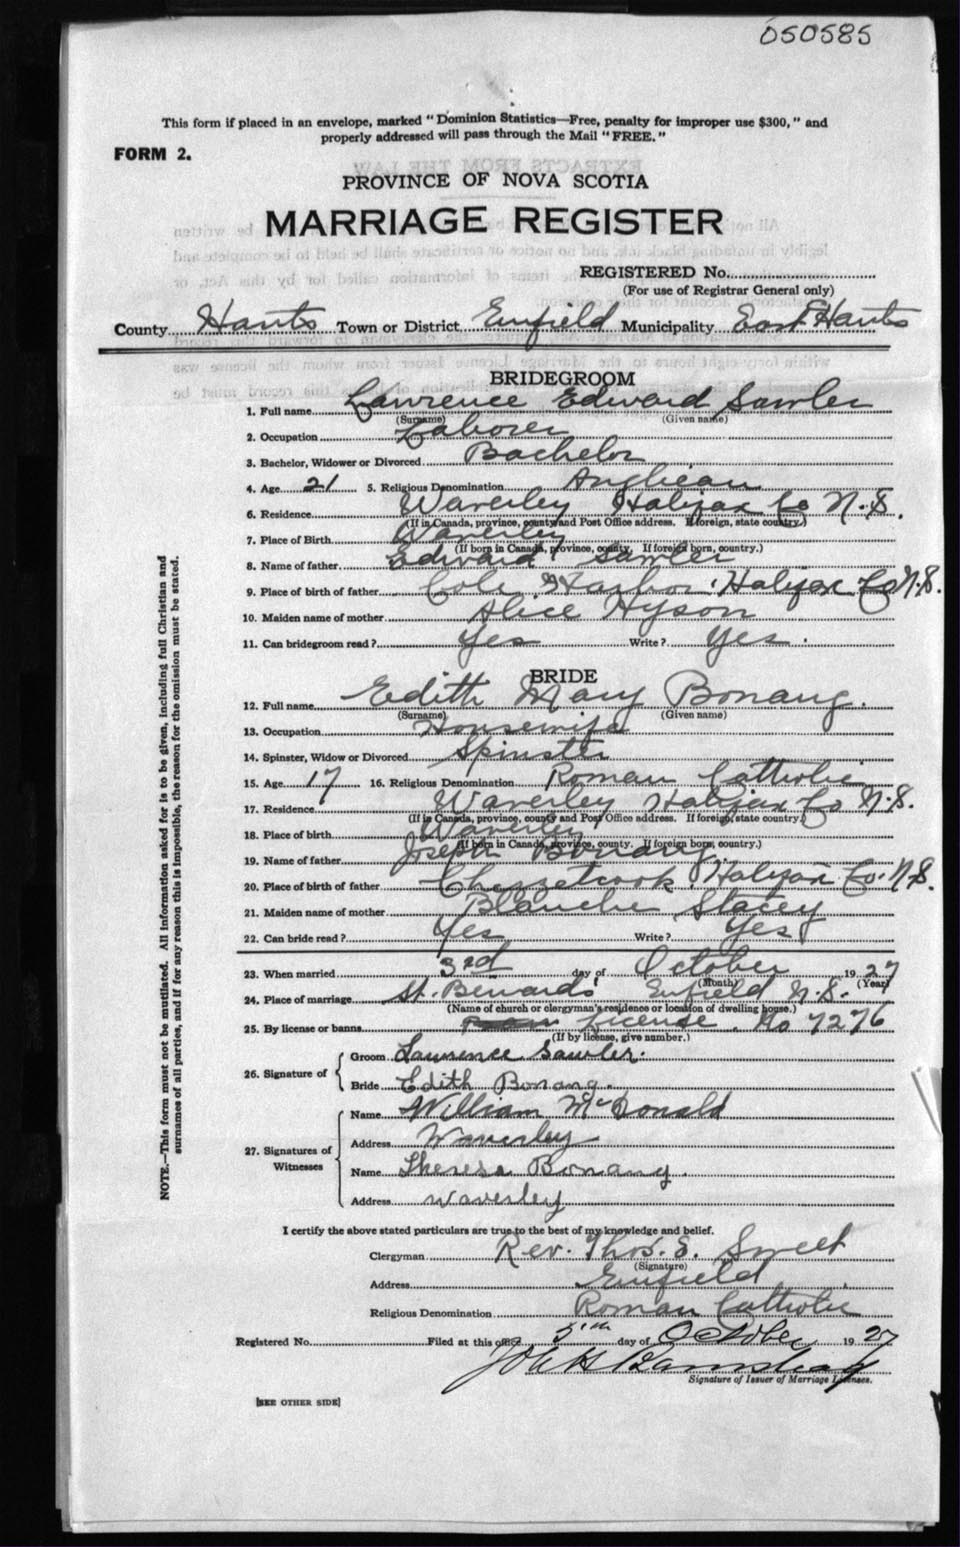 050585
This form if placed in an envelope, marked "Dominion Statistics—Free, penalty for improper use $300," and
properly addressed will pass through the Mail "FREE."
FORM 2.
PROVINCE OF NOVA SCOTIA
MARRIAGE REGISTER
REGISTERED No.
(For use of Registrar General only)
County Hants Town or District Enfield Municipality East Hants
BRIDEGROOM
1. Full name Lawrence Edward Sawler
(Surname) (Given name)
2. Occupation Laborer
3. Bachelor, Widower or Divorced Bachelor
4. Age 21 5. Religious Denomination Anglican
6. Residence Waverley Halifax Co N.S.
(If in Canada, province, county and Post Office address. If foreign, state country.)
7. Place of Birth Waverley
(If born in Canada, province, county. If foreign born, country.)
8. Name of father Edward Sawler
9. Place of birth of father Cole Harbor Halifax Co N.S.
10. Maiden name of mother Alice Hyson
11. Can bridegroom read? Yes Write? Yes.
BRIDE
12. Full name Edith Mary Bonang.
(Surname) (Given name)
13. Occupation Housewife
14. Spinster, Widow or Divorced Spinster
15. Age 17 16. Religious Denomination Roman Catholic
17. Residence Waverley Halifax Co N.S.
(If in Canada, province, county and Post Office address. If foreign, state country.)
18. Place of birth Waverley
(If born in Canada, province, county. If foreign born, country.)
19. Name of father Joseph Bonang.
20. Place of birth of father Chezzetcook Halifax Co. N.S.
21. Maiden name of mother Blanche Stacey
22. Can bride read? Yes Write? Yes
23. When married 3rd day of October 1927
(Month) (Year)
24. Place of marriage St. Bernards Enfield N.S.
(Name of church or clergyman's residence or location of dwelling house.)
25. By license or banns License. No 7276
(If by license, give number.)
26. Signature of Groom Lawrence Sawler.
Bride Edith Bonang.
27. Signatures of Witnesses Name William McDonald
Address Waverley
Name Theresa Bonang.
Address Waverley
I certify the above stated particulars are true to the best of my knowledge and belief.
Clergyman Rev. Thos. E. Sweet
(Signature)
Address Enfield
Religious Denomination Roman Catholic
Registered No. Filed at this office 5th day of October 1927
Signature of Issuer of Marriage Licenses.
[SEE OTHER SIDE]
NOTE.—This form must not be mutilated. All information asked for is to be given, including full Christian and
surnames of all parties, and if for any reason this is impossible, the reason for the omission must be stated.